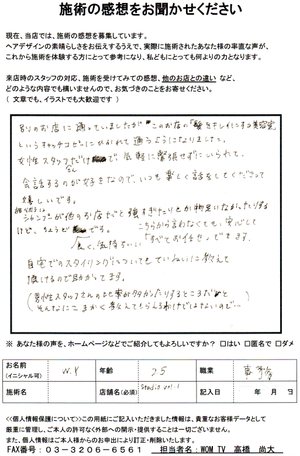 施術の感想をお聞かせください
現在、当店では、施術の感想を募集しています。
ヘアデザインの素晴らしさをお伝えするうえで、実際に施術されたあなた様の率直な声が、
これから施術を体験する方にとって参考になり、私どもにとっても何よりの力となります。
来店時のスタッフの対応、施術を受けてみての感想、他のお店との違い など、
どのような内容でも構いませんので、お気づきのことをお寄せください。
( 文章でも、イラストでも大歓迎です )
別のお店に通っていましたが このお店の「髪をキレイにする美容室」
というキャッチコピーにひかれて通うようになりました。
女性スタッフさんだけで 気軽に緊張せずにいられて、
会話するのが好きなので、いつも楽しく話をしてくださって
嬉しいです。
シャンプーが他のお店だと強すぎたり
けど、ちょうど です。
良く、気持ちいい
こちらから言わなくても、安心して
「すべてお任せ」できます。
自宅でのスタイリングについてもていねいに教えて
頂けるので助かってます。
(男性スタッフさんのお店
そんなにこまかく教えてもらえるわけではないので…)
※ あなた様の声を、ホームページなどでご紹介してもよろしいですか？ □はい □匿名で □ダメ
お名前 (イニシャル可) W.Y 年齢 25 職業
施術名 店舗名(必須) 記入日 年 月 日
<<個人情報保護について>>この用紙にご記入いただきました情報は、貴重なお客様データとして
厳重に管理し、ご本人の許可なく外部への開示・提供することは一切ございません。
また、個人情報はご本人様からのお申出により訂正・削除いたします。
FAX番号：０３－３２０６－６５６１ 担当者名：WOM TV 高橋 尚大